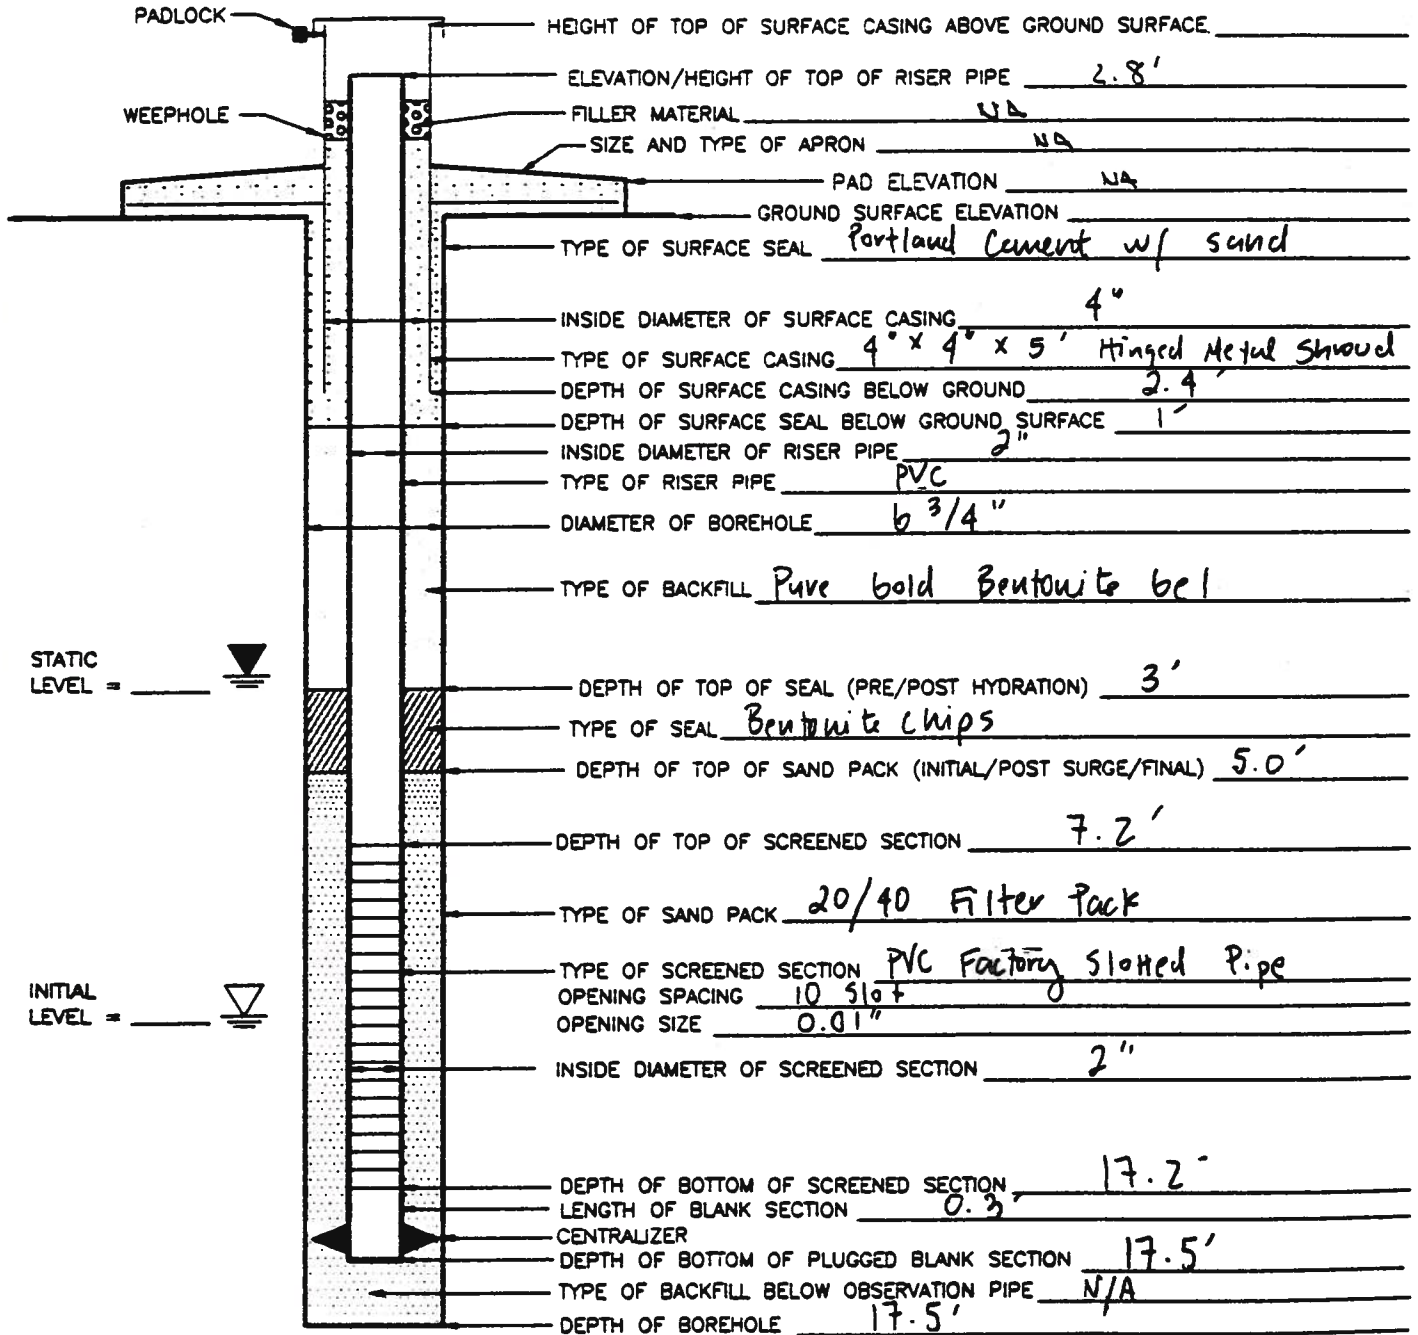 PADLOCK
HEIGHT OF TOP OF SURFACE CASING ABOVE GROUND SURFACE
ELEVATION/HEIGHT OF TOP OF RISER PIPE 2.8'
WEEPHOLE
FILLER MATERIAL NA
SIZE AND TYPE OF APRON NA
PAD ELEVATION NA
GROUND SURFACE ELEVATION
TYPE OF SURFACE SEAL Portland Cement w/ sand
INSIDE DIAMETER OF SURFACE CASING 4"
TYPE OF SURFACE CASING 4" x 4" x 5' Hinged Metal Shroud
DEPTH OF SURFACE CASING BELOW GROUND 2.4'
DEPTH OF SURFACE SEAL BELOW GROUND SURFACE 1'
INSIDE DIAMETER OF RISER PIPE 2"
TYPE OF RISER PIPE PVC
DIAMETER OF BOREHOLE 6 3/4"
TYPE OF BACKFILL Pure Gold Bentonite Gel
STATIC
LEVEL =
DEPTH OF TOP OF SEAL (PRE/POST HYDRATION) 3'
TYPE OF SEAL Bentonite Chips
DEPTH OF TOP OF SAND PACK (INITIAL/POST SURGE/FINAL) 5.0'
DEPTH OF TOP OF SCREENED SECTION 7.2'
TYPE OF SAND PACK 20/40 Filter Pack
TYPE OF SCREENED SECTION PVC Factory Slotted Pipe
INITIAL
LEVEL =
OPENING SPACING 10 Slot
OPENING SIZE 0.01"
INSIDE DIAMETER OF SCREENED SECTION 2"
DEPTH OF BOTTOM OF SCREENED SECTION 17.2'
LENGTH OF BLANK SECTION 0.3'
CENTRALIZER
DEPTH OF BOTTOM OF PLUGGED BLANK SECTION 17.5'
TYPE OF BACKFILL BELOW OBSERVATION PIPE N/A
DEPTH OF BOREHOLE 17.5'